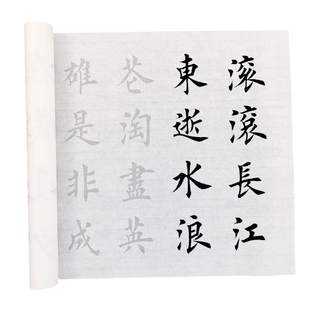 滚滚長江
東逝水浪
苍淘盡英
雄是非成